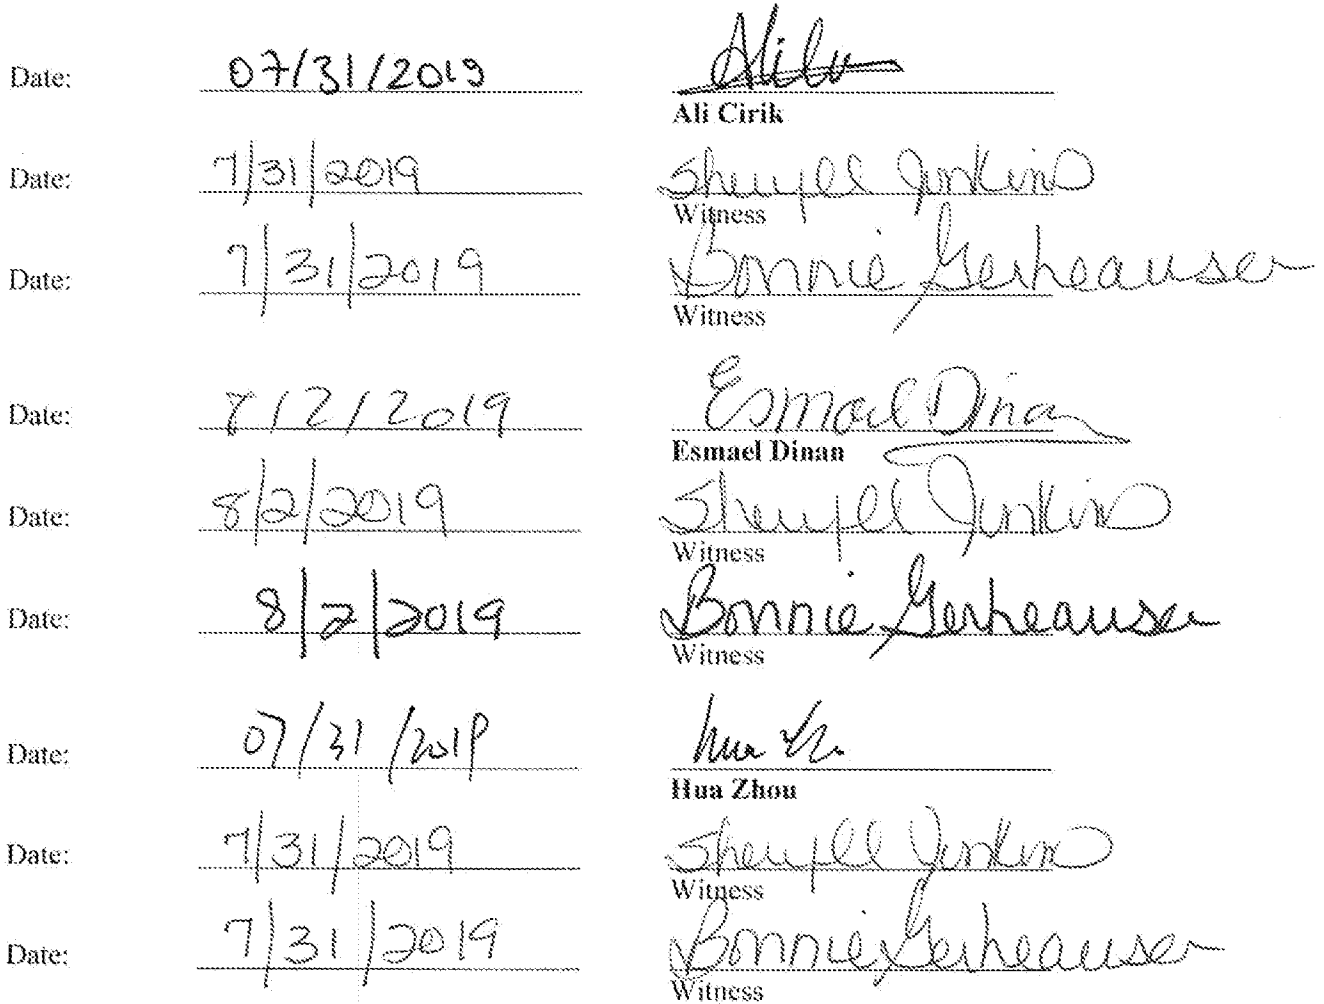 Date: 07/31/2019
Ali Cirik
Date: 7/31/2019 Sheryll Jenkins
Witness
Date: 7/31/2019 Bonnie Gerheauser
Witness
Date: 8/2/2019 Esmael Dinan
Esmael Dinan
Date: 8/2/2019 Sheryll Jenkins
Witness
Date: 8/2/2019 Bonnie Gerheauser
Witness
Date: 07/31/2019 Hua
Hua Zhou
Date: 7/31/2019 Sheryll Jenkins
Witness
Date: 7/31/2019 Bonnie Gerheauser
Witness